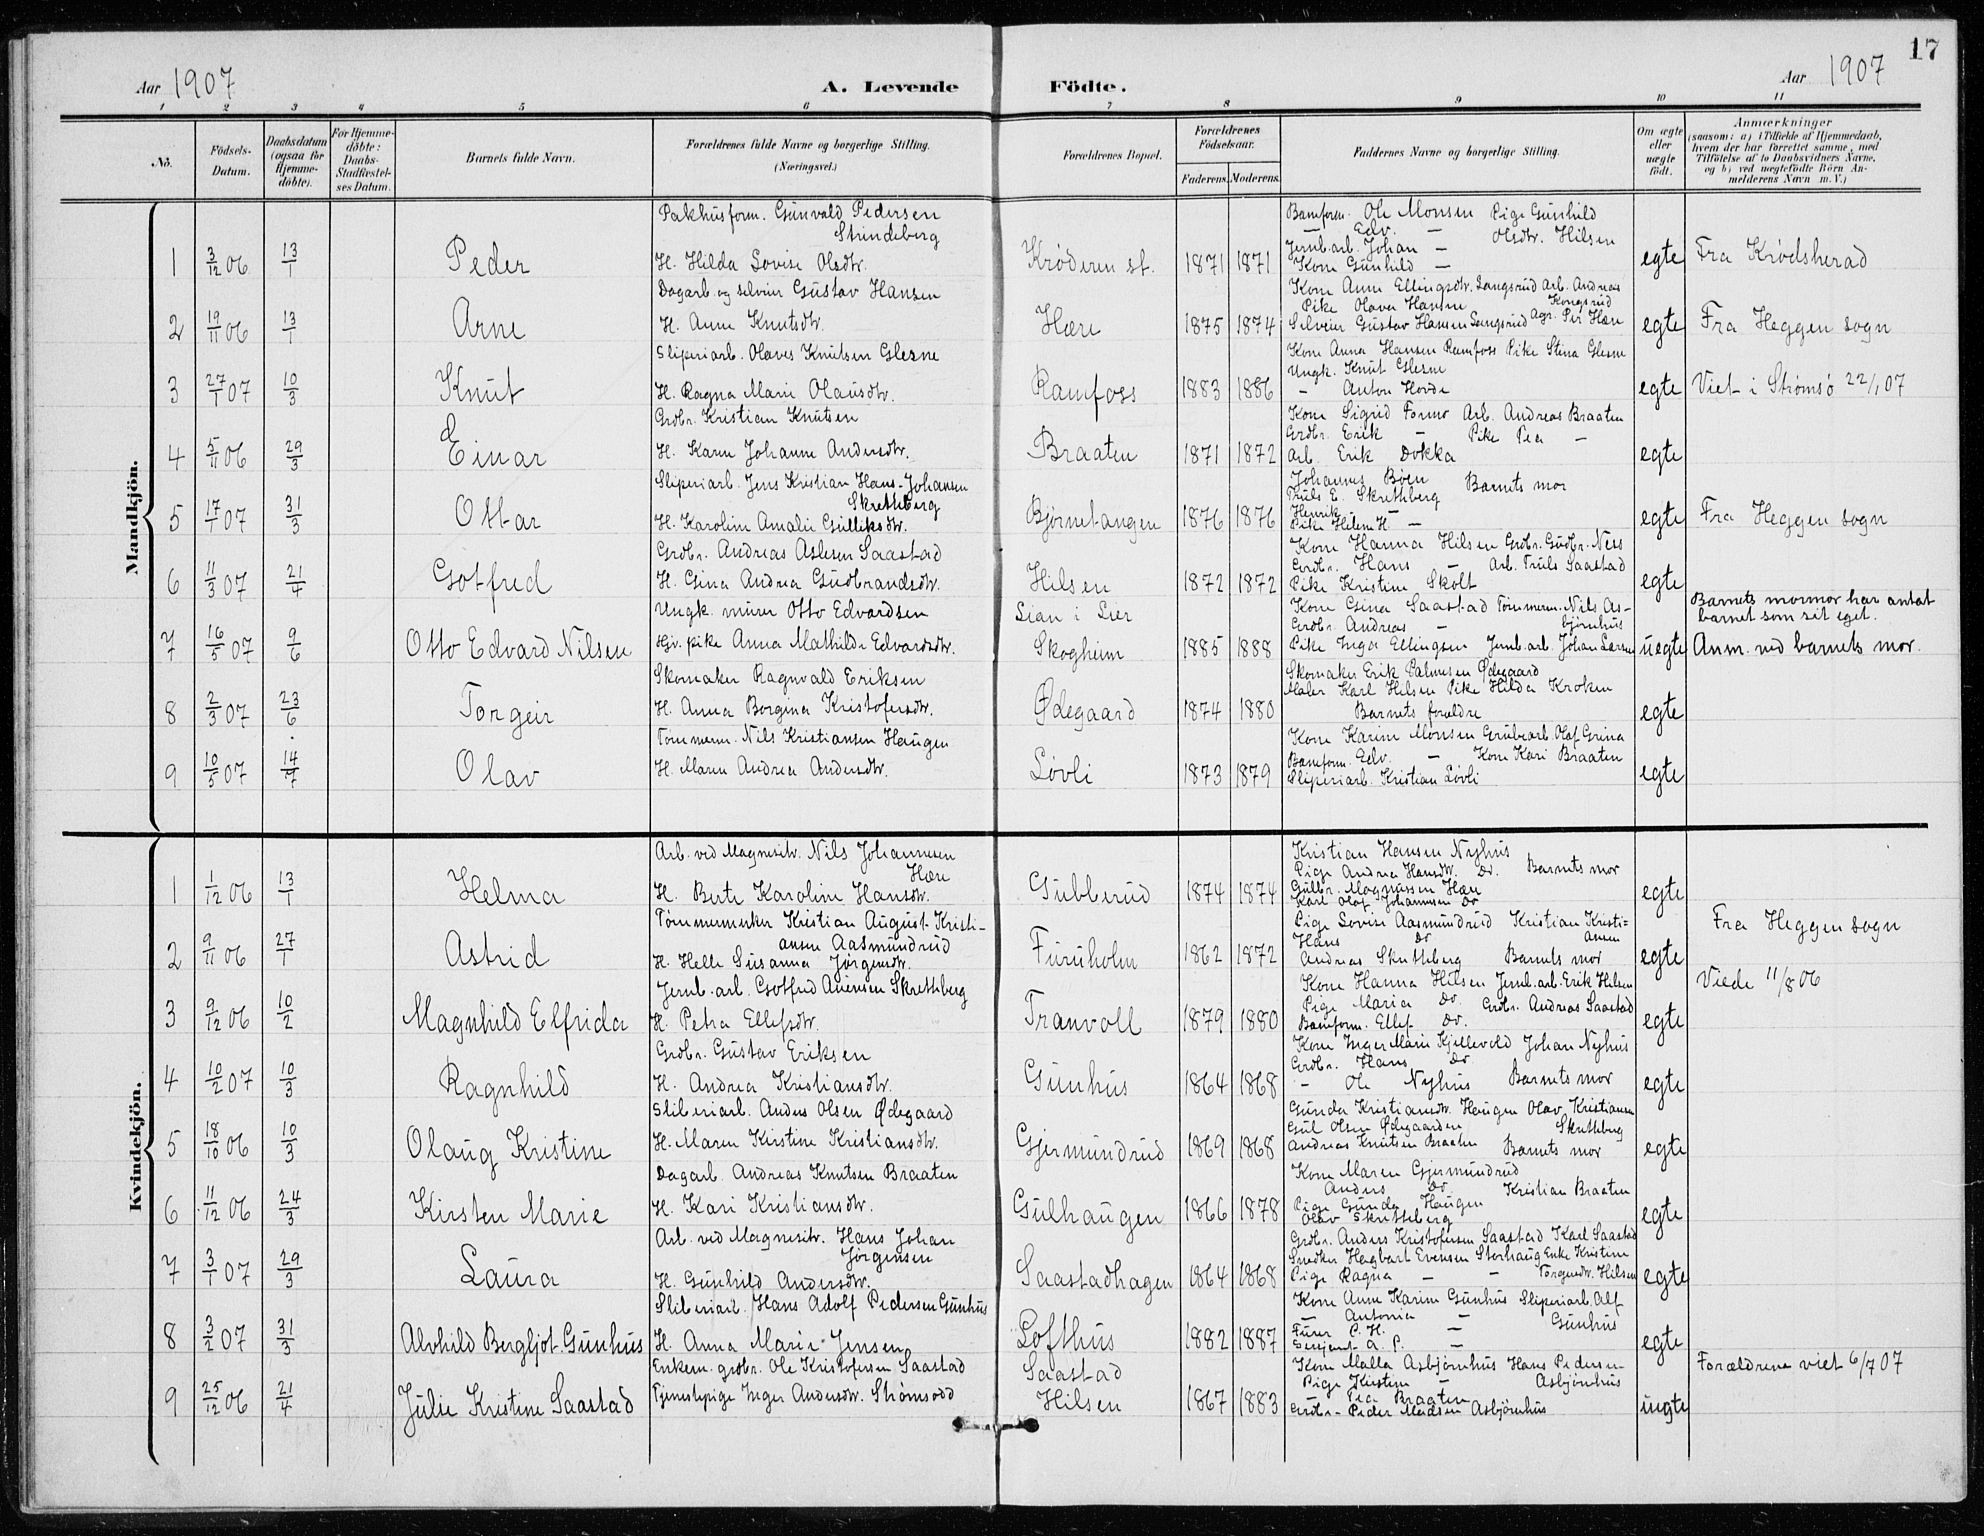 17
Aar 1907
A. Levende Födte.
Aar 1907
1 2 3 4 5 6 7 8 9 10 11
No.
Födsels-Datum.
Daabsdatum (ogsaa for Hjemmedöbte).
For Hjemmedöbte: Daabs-Stadfæstelses Datum.
Barnets fulde Navn.
Forældrenes fulde Navne og borgerlige Stilling. (Næringsvei.)
Forældrenes Bopæl.
Forældrenes Födselsaar.
Faderens. Moderens.
Faddernes Navne og borgerlige Stilling.
Om ægte eller uægte födt.
Anmærkninger
(saasom: a) i Tilfælde af Hjemmedaab, hvem der har forrettet samme, med Tilföielse af to Daabsvidners Navne, og b) ved uegtefödte Börn Anmelderens Navn m. V.)
Mandkjön.
Pakhusform. Gunvald Pedersen Strindeberg
1 3/12 06 13/1 Peder H. Hilda Lovise Olsdtr. Krøderen st. 1871 1871
Bamform. Ole Monsen Pige Gunhild
— Edv. — Olsdtr. Hilsen
Jernb.arb. Johan —
Kone Gunhild —
egte Fra Krødsherad
Dagarb. og selveier Gustav Hansen
2 19/11 06 13/1 Arne H. Anne Knutsdtr. Hære 1875 1874
Kone Anne Ellingsdtr. Langsrud Arb. Andreas Kongsrud
Pike Olava Hansen
Selveier Gustav Hansen Langsrud Agr. Per Hære
egte Fra Heggen sogn
Sliperiarb. Olaves Knutsen Glesne
3 27/1 07 10/3 Knut H. Ragna Marie Olausdtr. Ramfoss 1883 1886
Kone Anna Hansen Ramfoss Pike Stina Glesne
Ungk. Knut Glesne
— Anton Horde
egte Viet i Strømsö 22/1 07
Grdbr. Kristian Knutsen
4 5/11 06 29/3 Einar H. Karen Johanne Andersdtr. Braaten 1871 1872
Kone Sigrid Formo Arb. Andreas Braaten
Grdbr. Erik — Pike Pea —
Arb. Erik Dokka
egte
Sliperiarb. Jens Kristian Hans-Johansen Skrethberg
5 17/1 07 31/3 Ottar H. Karoline Amalie Gulliksdtr. Bjørnetangen 1876 1876
Johannes Bøen Barnets mor
Truls E. Skrethberg
Henrik —
Pike Helene H. —
egte Fra Heggen sogn
Grdbr. Andreas Aslesen Saastad
6 11/3 07 21/4 Gotfred H. Gina Andrea Gudbrandsdtr. Hilsen 1872 1872
Kone Hanna Hilsen Grdbr. Gudbr. Nels
Grdbr. Hans — Arb. Truls Saastad
Pike Kristine Skolt
egte
Ungk. murer Otto Edvardsen Lian i Lier
7 16/5 07 9/6 Otto Edvard Nilsen Gv. pike Anna Mathilde Edvardsdtr. Skogheim 1885 1888
Kone Gina Saastad Tømmerm. Nils Asbjørnhus
Grdbr. Andreas —
Pike Inga Ellingsen Jernb.arb. Johan Larsen
uegte Barnets mormor har antat barnet som sit eget.
Anm. ved barnets mor.
Skomaker Ragnvald Eriksen
8 2/3 07 23/6 Torgeir H. Anna Borgina Kristofersdtr. Ødegaard 1874 1880
Skomaker Erik Palmesen Ødegaard
Maler Karl Hilsen Pike Hilda Kroken
Barnets forældre
egte
Tømmerm. Nils Kristiansen Haugen
9 10/5 07 14/7 Olav H. Maren Andrea Andersdtr. Løvli 1873 1879
Kone Karine Monsen Grubearb. Olaf Grina
Bamform. Edv. — Kone Kari Braaten
Sliperiarb. Kristian Løvli
egte
Kvindekjön.
Arb. ved Magnesitv. Nils Johannesen Hære
1 1/12 06 13/1 Helma H. Berte Karoline Hansdtr. Gubberud 1874 1874
Kristian Hansen Nyhus
Pige Andrea Hansdtr. Do. Barnets mor
Gulbr. Magnussen Hære
Karl Olaf Johannesen Do
egte
Tømmermerker Kristian August Kristiansen Aasmundrud
2 9/11 06 27/1 Astrid H. Helle Susanna Jørgensdtr. Furuholm 1862 1872
Pige Lovise Aasmundrud Kristian Kristiansen
Hans Do
Andreas Skrethberg Barnets mor
egte Fra Heggen sogn
Jernb.arb. Gotfred Auensen Skrethberg
3 9/12 06 10/2 Magnhild Elfrida H. Petra Ellefsdtr. Tranvoll 1879 1880
Kone Hanna Hilsen Jernb.arb. Erik Hilsen
Pige Maria Do. Grdbr. Andreas Saastad
Bamform. Ellef Do.
egte Viede 11/8 06
Grdbr. Gustav Eriksen
4 10/2 07 10/3 Ragnhild H. Andrea Kristiansdtr. Gunhus 1864 1868
Kone Inger Marie Kjellevold Johan Nyhus
Grdbr. Hans Do
— Ole Nyhus Barnets mor
egte
Sliberiarb. Anders Olsen Ødegaard
5 18/10 06 10/3 Olaug Kristine H. Maren Kirstine Kristiansdtr. Gjermundrud 1869 1868
Gunda Kristiansdtr. Haugen Olav Kristiansen Skrethberg
Gul Olsen Ødegaarden
Andreas Knutsen Braaten Barnets mor
egte
Dagarb. Andreas Knutsen Braaten
6 11/12 06 24/3 Kirsten Marie H. Kari Kristiansdtr. Gulhaugen 1866 1878
Kone Maren Gjermundrud
Anders Do. Kristian Braaten
Pige Gunda Haugen
Olav Skretteberg
egte
Arb. ved Magnesitv. Hans Johan Jørgensen
7 3/1 07 29/3 Laura H. Gunhild Andersdtr. Saastadhagen 1864 1868
Grdbr. Anders Kristofersen Saastad Karl Saastad
Snedker Hagbart Evensen Storhaug Enke Kristine
Pige Ragna — — Torgersdtr. Hilsen
egte
Sliberiarb. Hans Adolf Pedersen Gunhus
8 3/2 07 31/3 Alvhild Bergljot Gunhus H. Anna Marie Jensen Lofthus 1882 1887
Kone Anne Karine Gunhus Sliperiarb. Alf Gunhus
— Antonia —
Furer C. H. —
Sersjent A. P. —
egte
Enkem. grdbr. Ole Kristofersen Saastad Saastad
9 25/12 06 21/4 Julie Kristine Saastad Tjenestepige Inger Andersdtr. Strømsodd Hilsen 1867 1883
Kone Malla Asbjørnhus Hans Pedersen Asbjørnhus
Pige Kirstine —
— Pea Braaten
Grdbr. Peder Madsen Asbjørnhus
uegte Forældrene viet 6/7 07